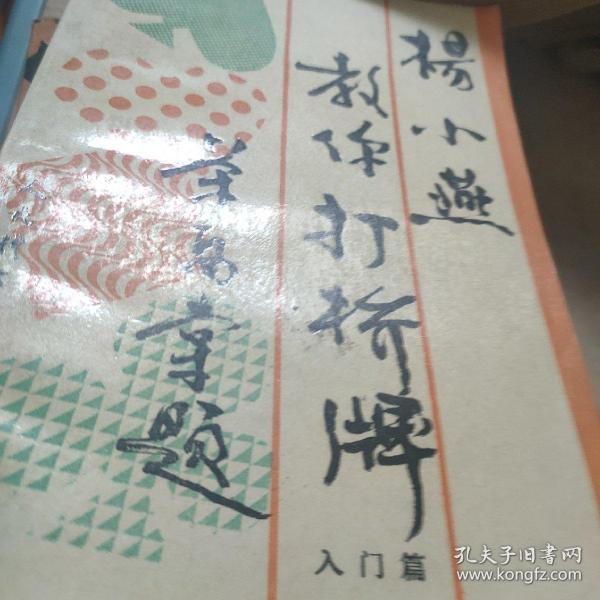 楊小燕
教你打桥牌
入门篇
荣高棠题
孔夫子旧书网
www.kongfz.com